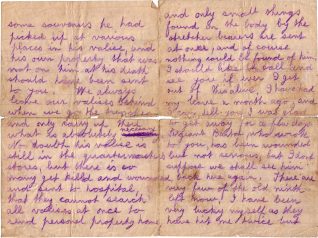 some souvenirs he had
picked up at various
places in his valise, and
his own property that was
not on him at his death
should have been sent
to you. We always
leave our valises behind
when we go the
and only carry
what is absolutely necessary
No doubt his valise is
still in the quartermaster's
stores, but there is so
many get killed and wounded
and sent to hospital,
that they cannot search
all valises at once to
send personal property home
and only small things
found on the body by the
stretcher bearers are sent
at once, and of course
nothing could be found of him.
I should like to call and
see you if ever I get
out of this alive, I have had
my leave a month ago, and
I can tell you I was glad
to get away for a
Sergeant who wrote
to you, has been wounded
but not serious, but I don't
suppose we shall see him
back here again. There are
very few of the old ninth
left now. I have been
very lucky myself as they
have hit me twice but